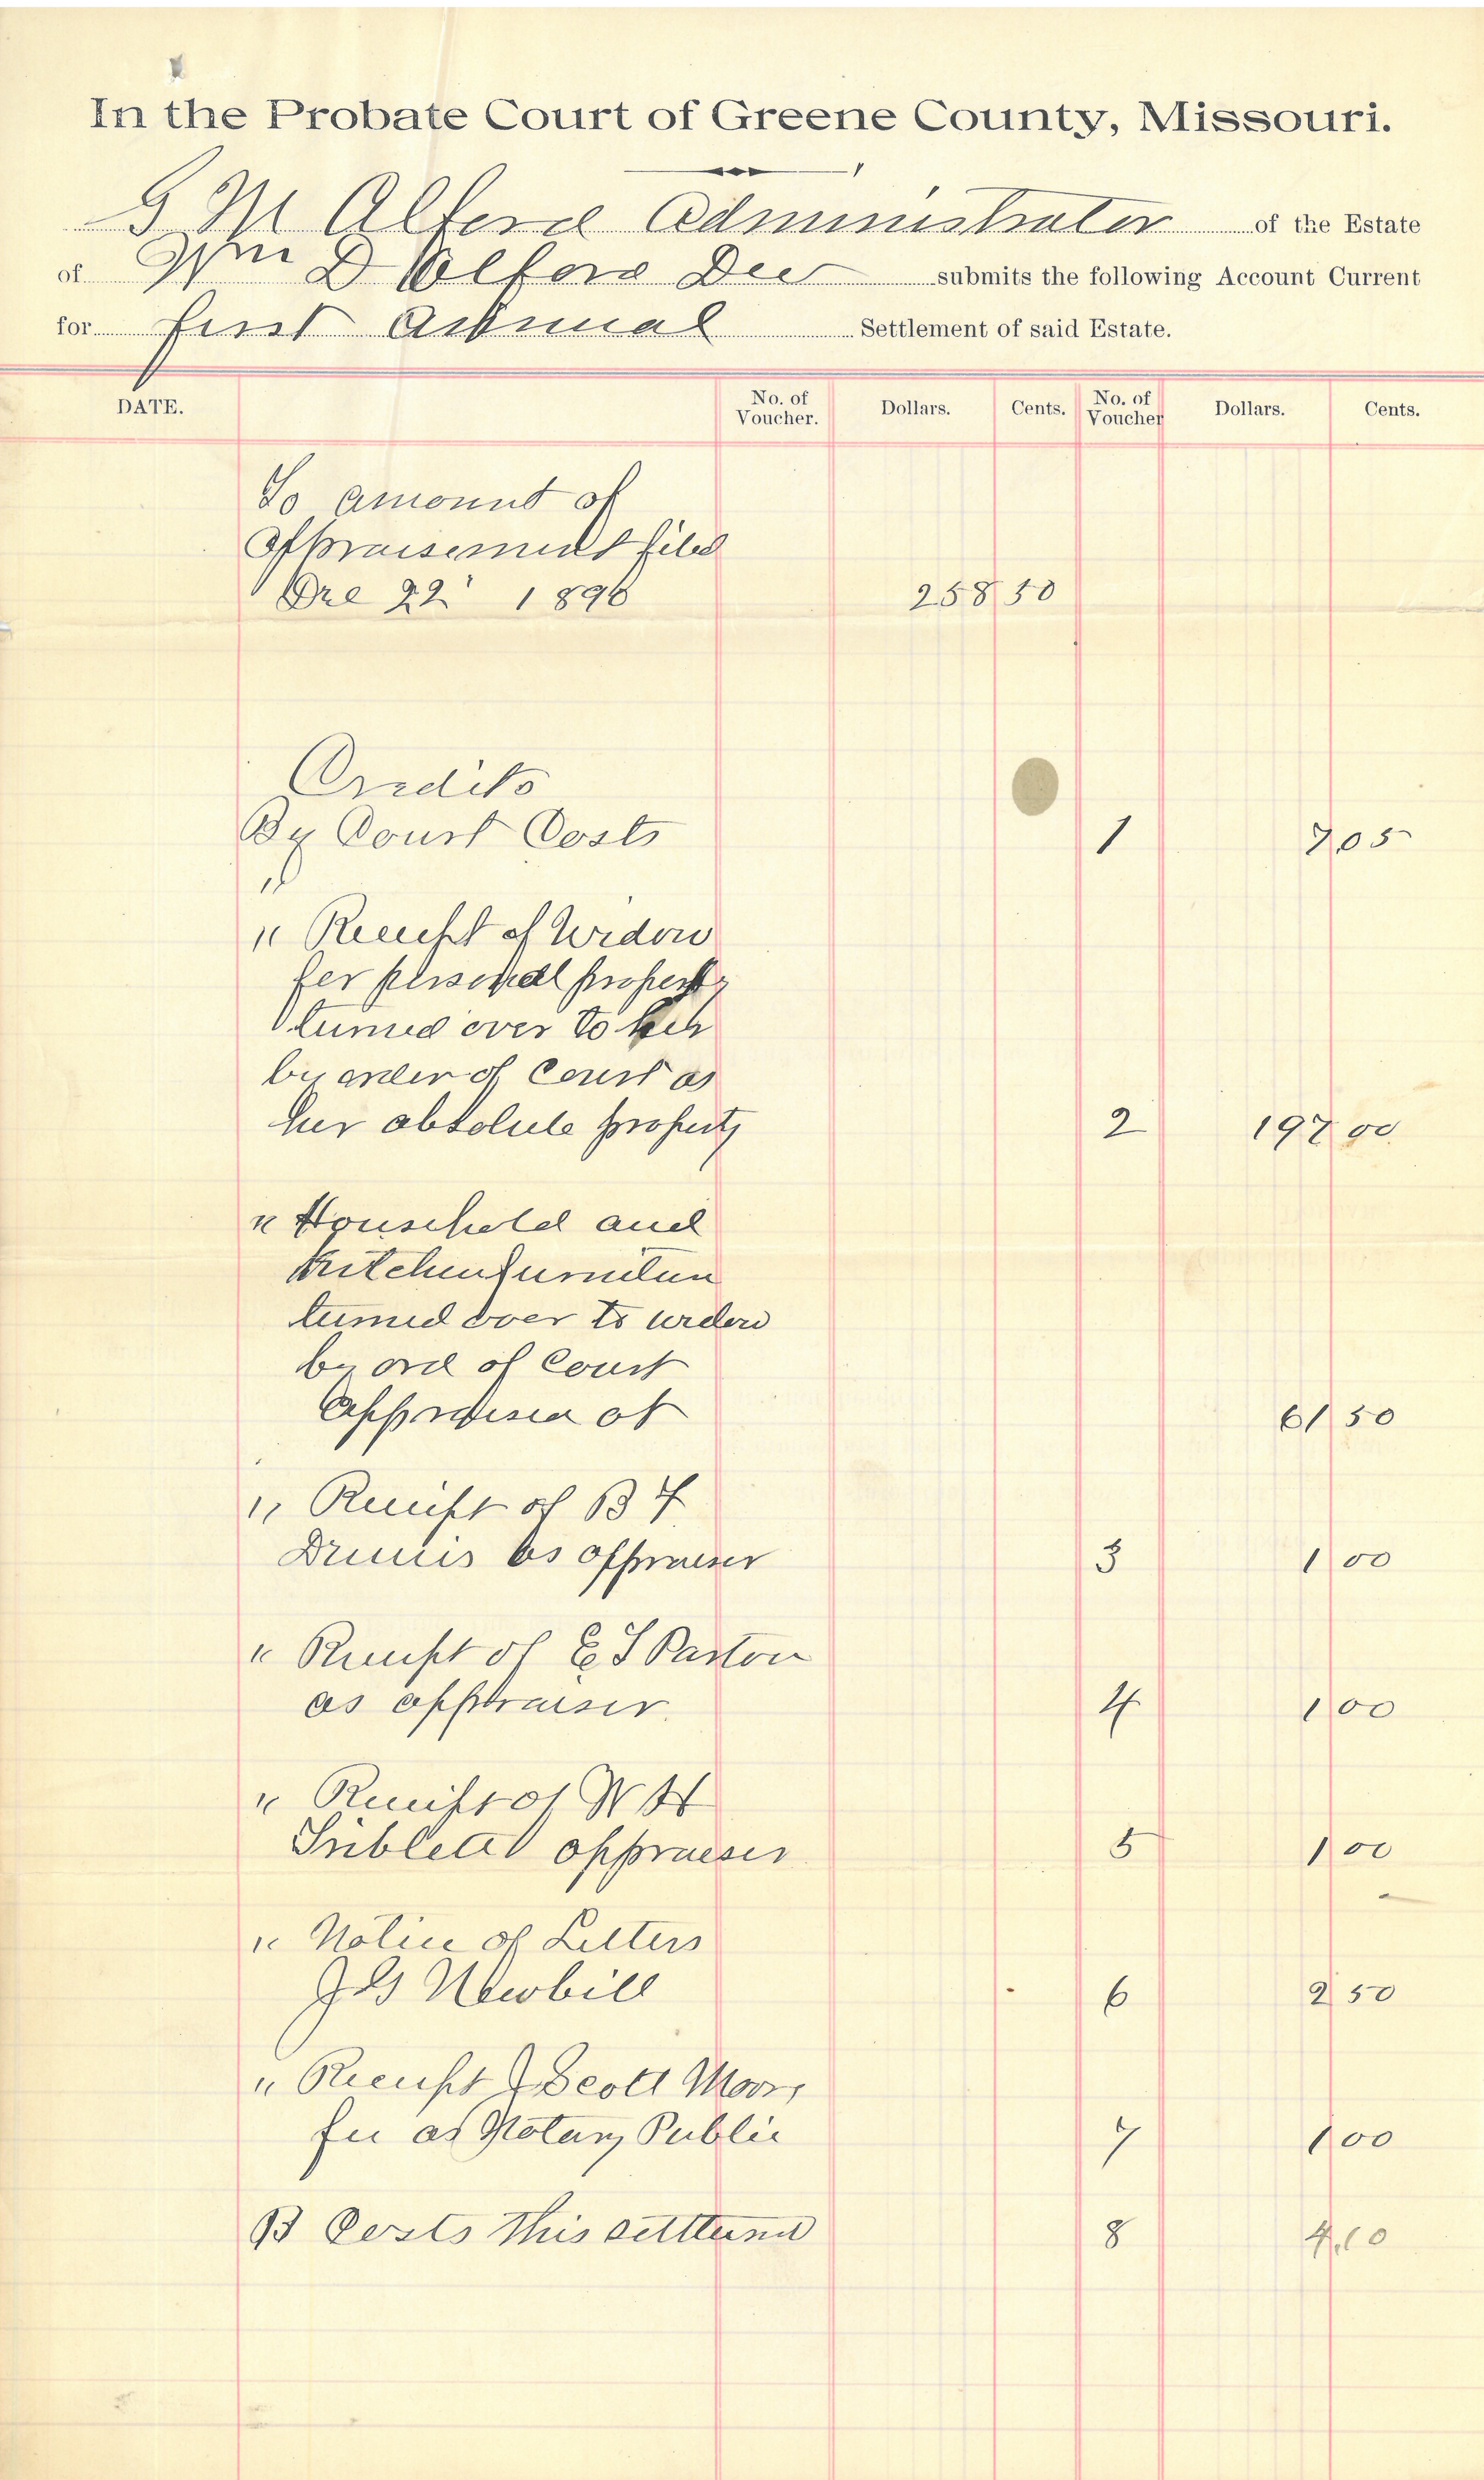 In the Probate Court of Greene County, Missouri.
G M Alford Administrator of the Estate
of Wm D Alford Dec submits the following Account Current
for first Annual Settlement of said Estate.
DATE. No. of Voucher. Dollars. Cents. No. of Voucher Dollars. Cents.
To amount of
appraisement filed
Dec 22 1896 258 50
Credits
By Court Costs 1 7 05
"
" Receipt of Widow
for personal property
turned over to her
by order of Court as
her absolute property 2 197 00
" Household and
Kitchen furniture
turned over to widow
by ord of Court
Appraised at 61 50
" Receipt of B F
as appraiser 3 1 00
" Receipt of E S Paxton
as appraiser 4 1 00
" Receipt of W H
Sublett appraiser 5 1 00
" Notice of Letters
J G Newbill 6 2 50
" Receipt J Scott Moore
fee as Notary Public 7 1 00
B Costs this settlement 8 4.10